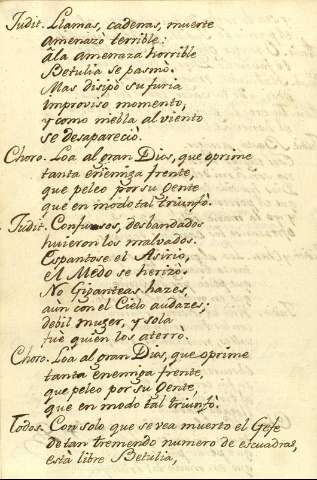 Judit. Llamas, cadenas, muerte
amenazò terrible:
âla amenaza horrible
Betulia se pasmò.
Mas disipò su furia
improviso momento,
y como niebla al viento
se desapareciò.
Choro. Loa al gran Dios, que oprime
tanta enemiga frente,
que peleò por su Gente
que en modo tal triunfò.
Judit. Confusos, desbandados
huieron los malvados.
Espantose el Asirio,
el Medo se herizò.
No Giganteas hazes,
aùn con el Cielo audazes;
debil muger, y sola
fuè quien los aterrò.
Choro. Loa al gran Dios, que oprime
tanta enemiga frente,
que peleò por su Gente,
que en modo tal triunfò.
Todos. Con solo que se vea muerto el Gefe
de tan tremendo numero de escuadras,
està libre Betulia,